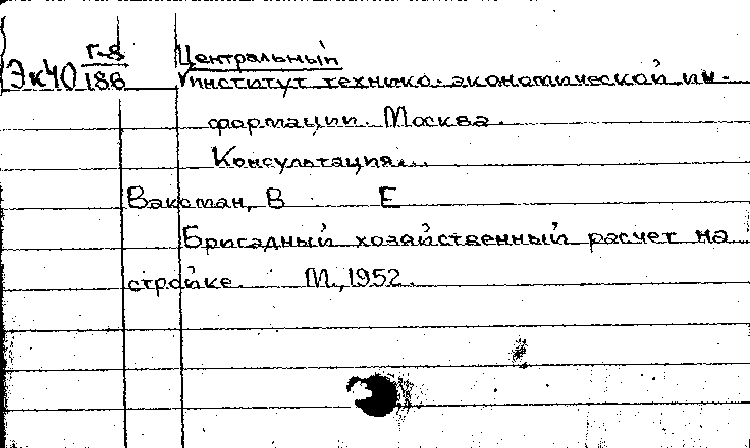 Эк40 Г-8/186
Центральный
институт технико-экономической ин-
формации. Москва.
Консультация...
Ваксман, В Е
Бригадный хозяйственный расчет на
стройке. М., 1952.